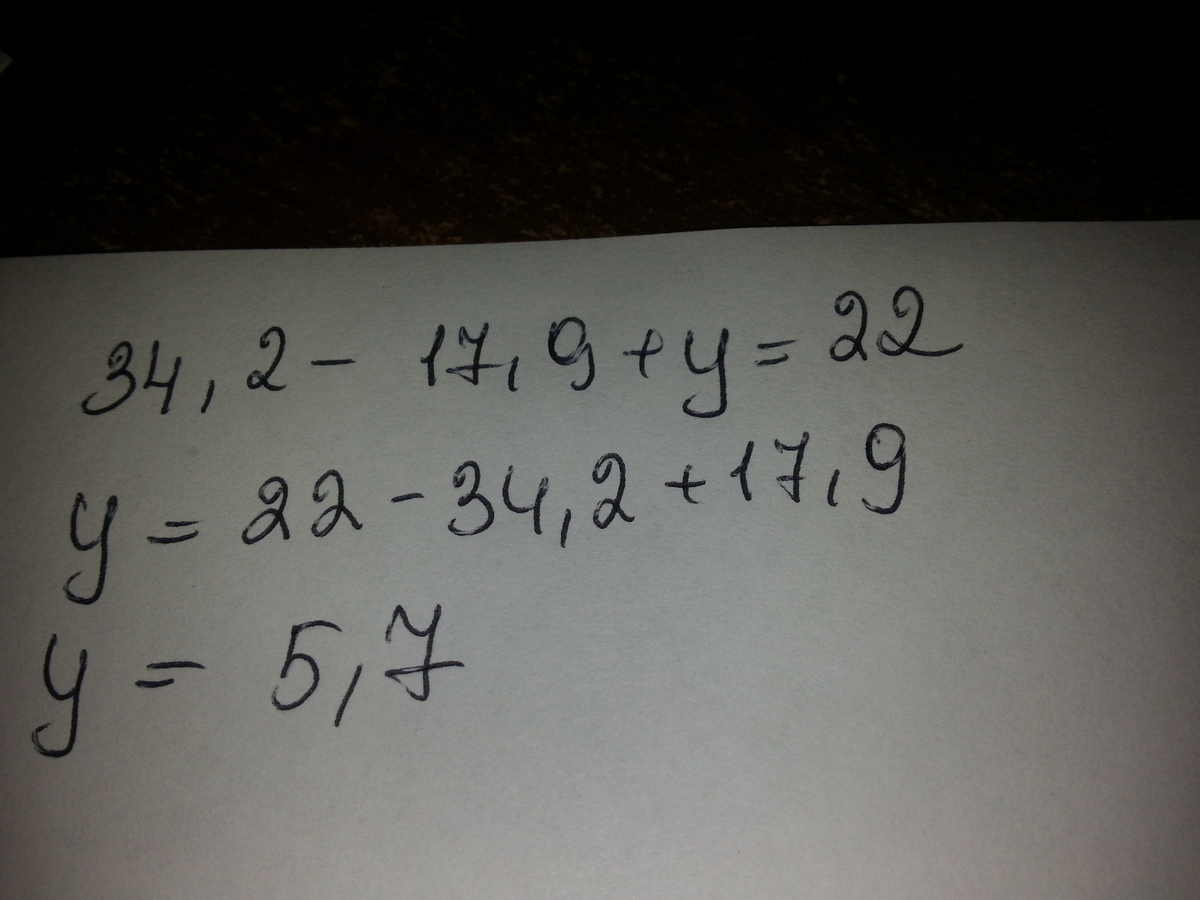 34,2 - 17,9 + y = 22
y = 22 - 34,2 + 17,9
y = 5,7